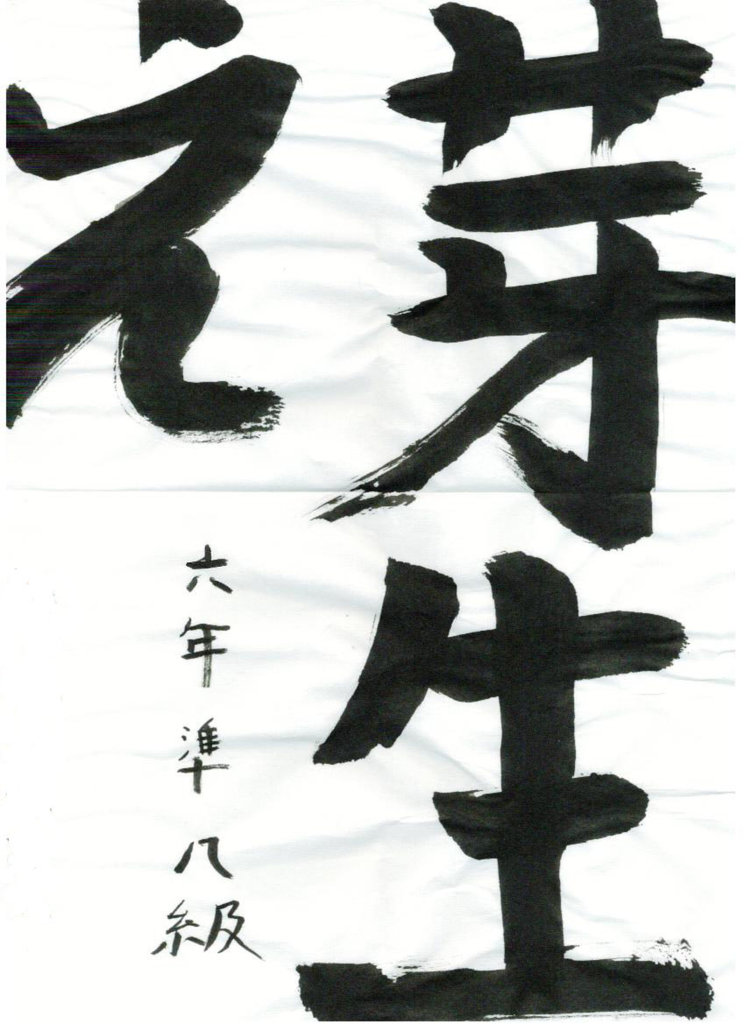 芽生
え
六年準八級